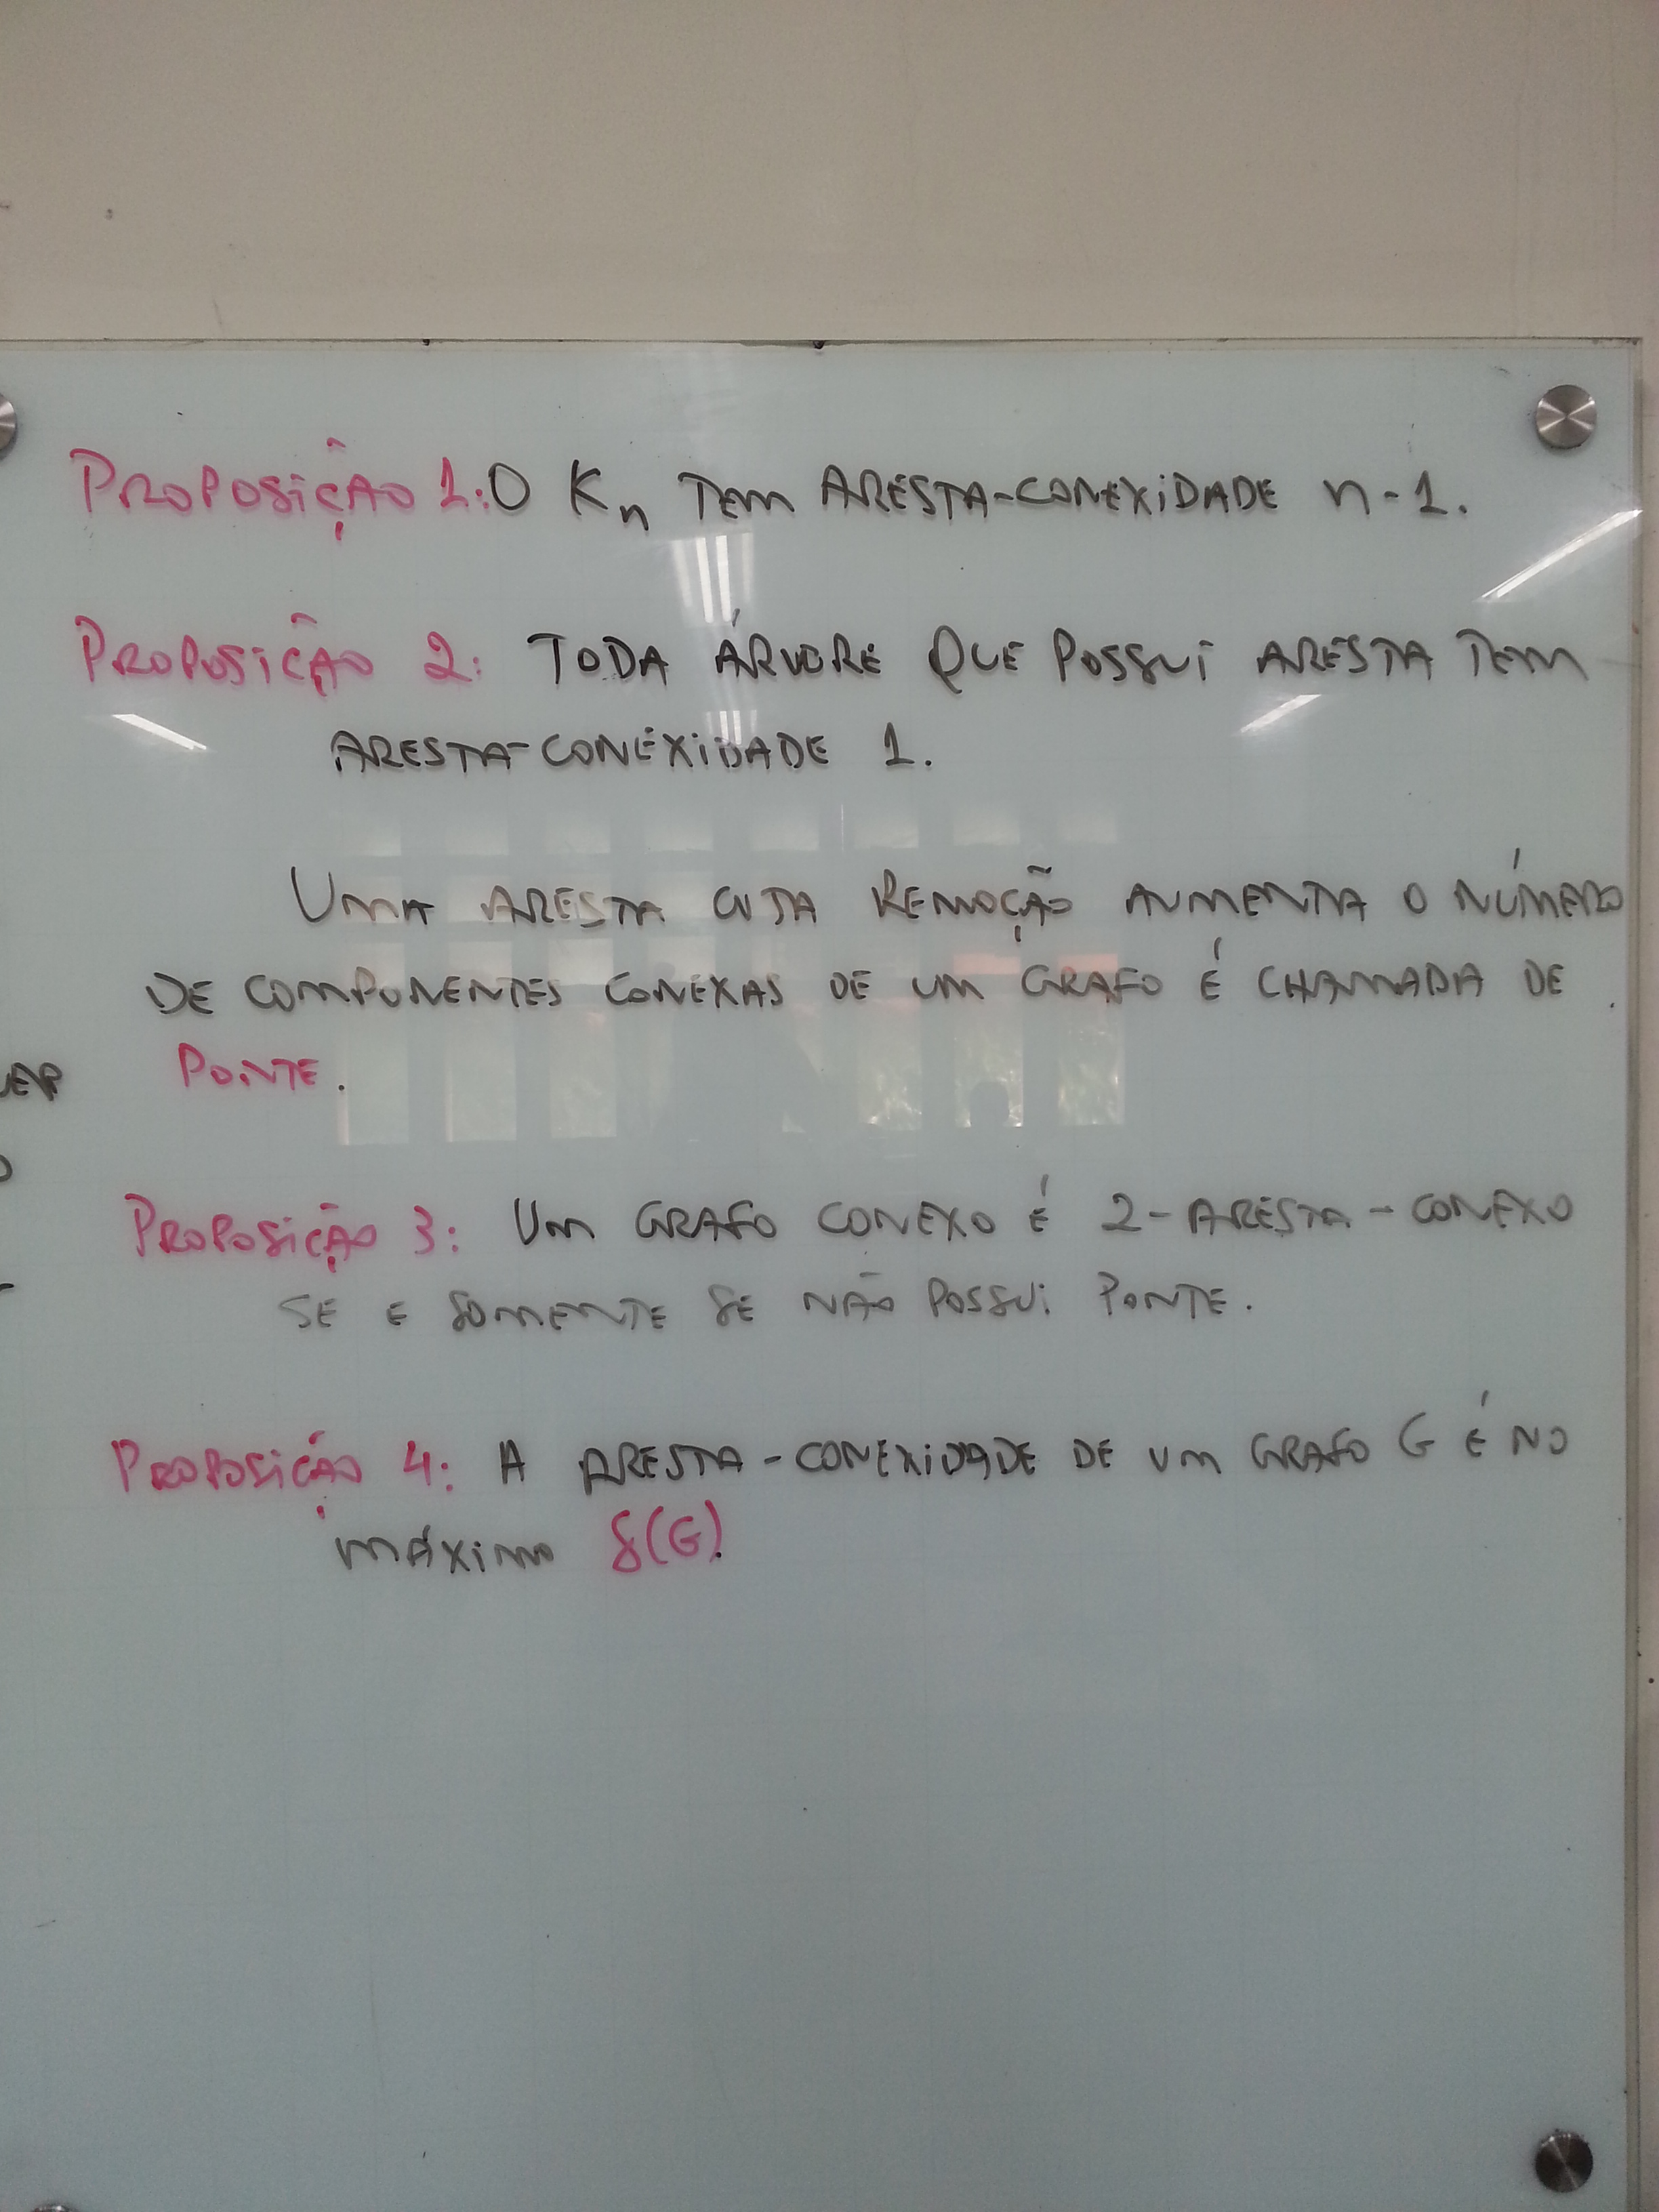 PROPOSIÇÃO 1: O Kn TEM ARESTA-CONEXIDADE n-1.
PROPOSIÇÃO 2: TODA ÁRVORE QUE POSSUI ARESTA TEM
ARESTA-CONEXIDADE 1.
UMA ARESTA CUJA REMOÇÃO AUMENTA O NÚMERO
DE COMPONENTES CONEXAS DE UM GRAFO É CHAMADA DE
PONTE.
PROPOSIÇÃO 3: UM GRAFO CONEXO É 2-ARESTA-CONEXO
SE E SOMENTE SE NÃO POSSUI PONTE.
PROPOSIÇÃO 4: A ARESTA-CONEXIDADE DE UM GRAFO G É NO
MÁXIMO δ(G).